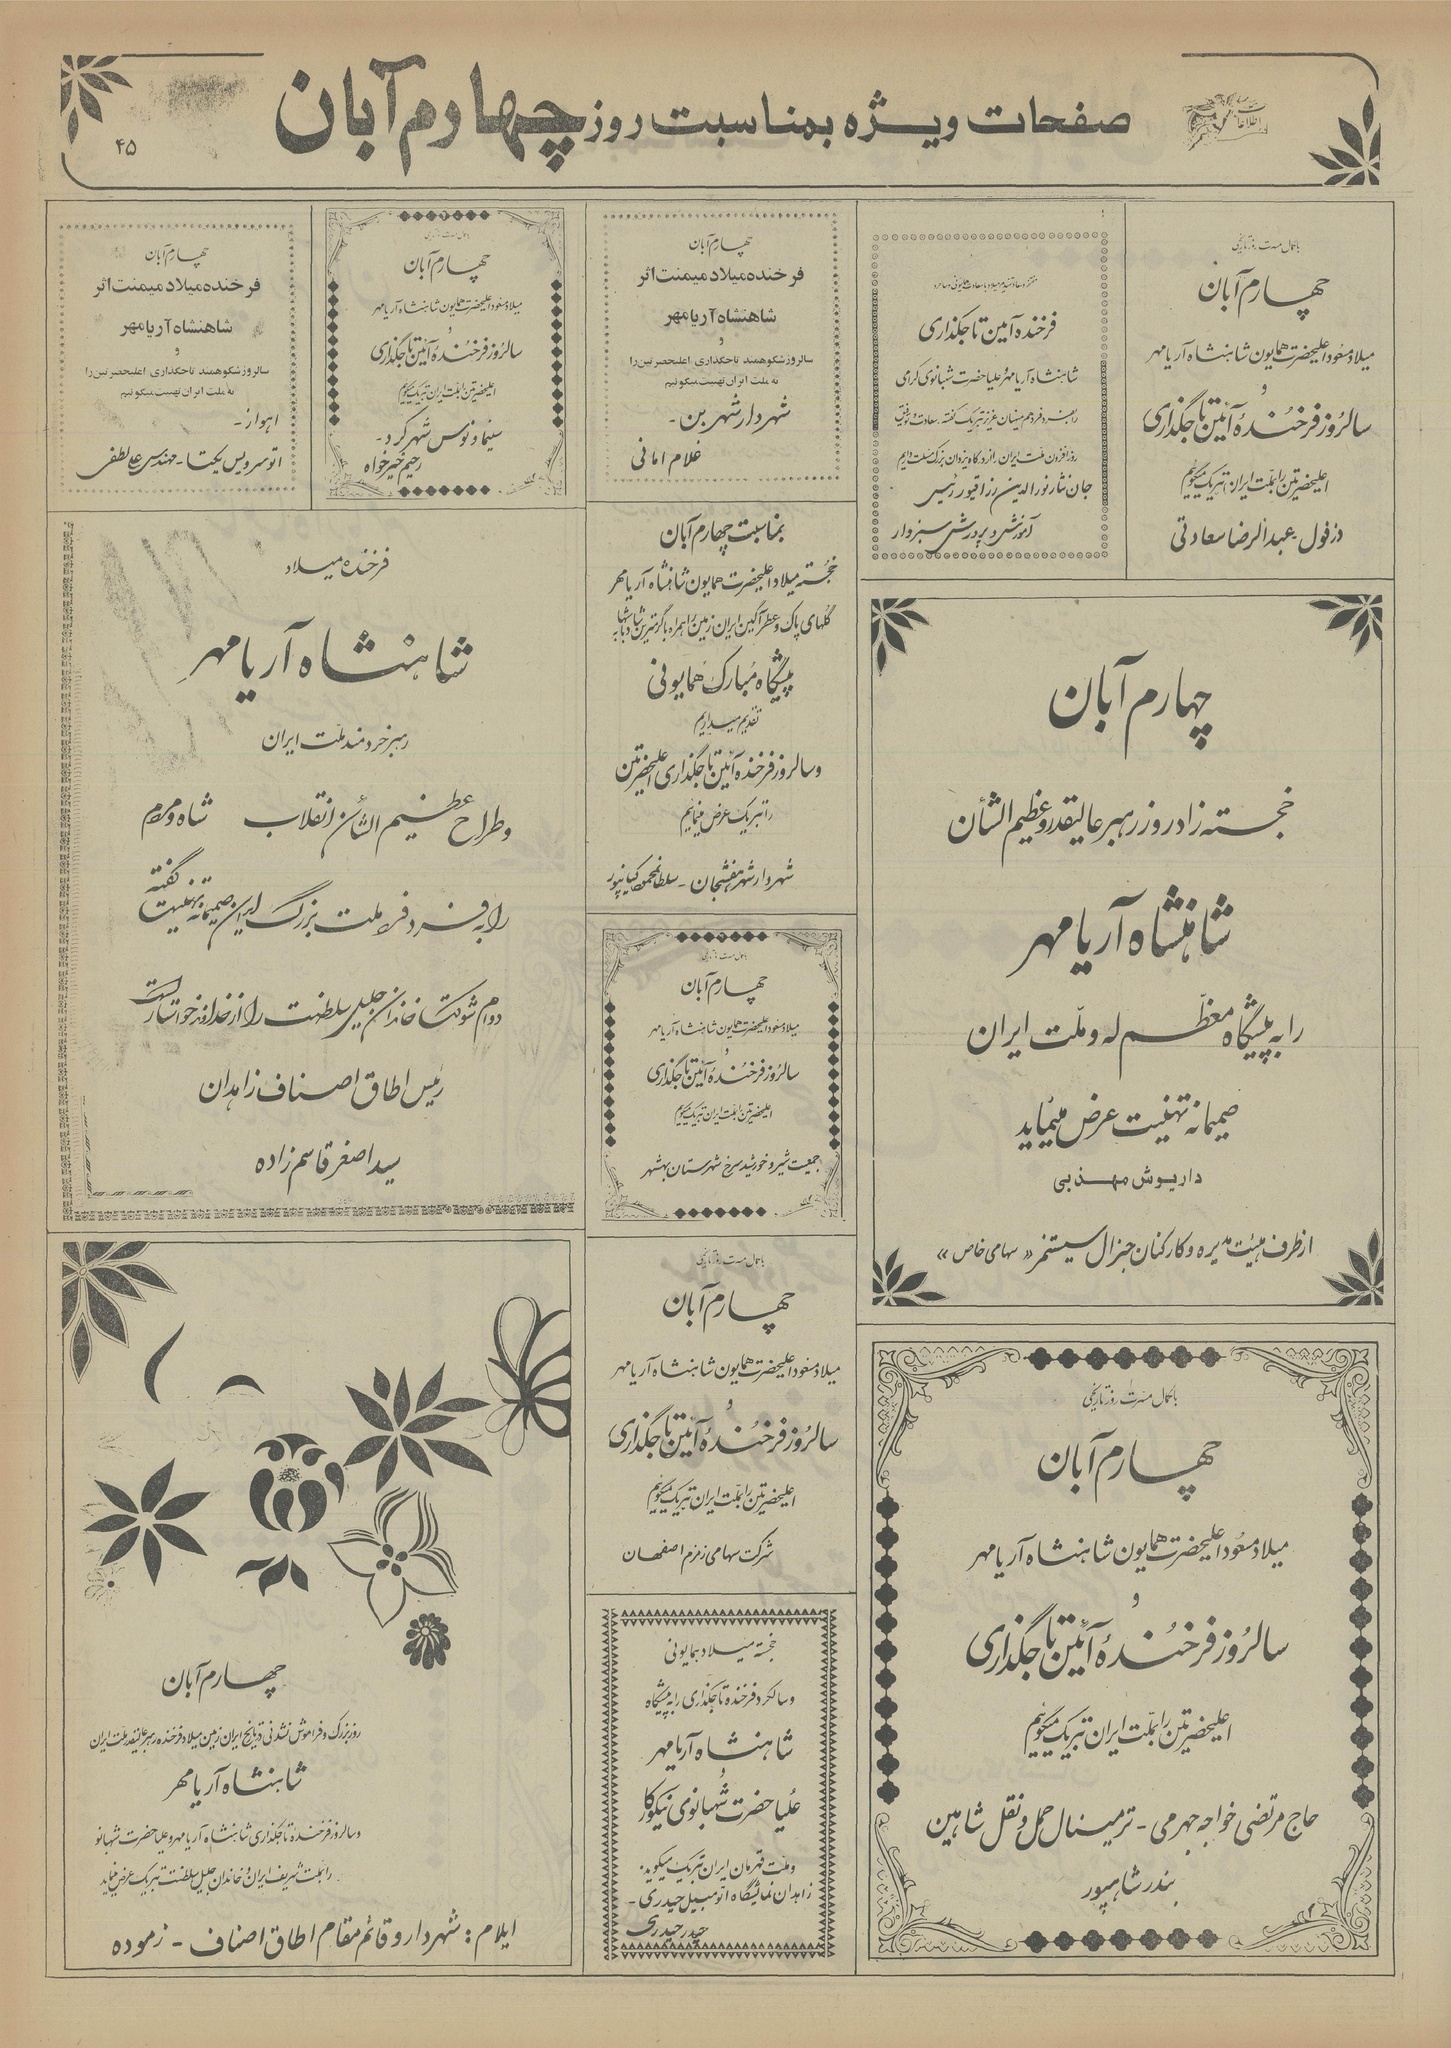 صفحات ویژه بمناسبت روز چهارم آبان
اطلاعات
۴۵
با کمال مسرت روز تاریخی
چهارم آبان
میلاد مسعود اعلیحضرت همایون شاهنشاه آریامهر
و
سالروز فرخندهٔ آئین تاجگذاری
اعلیحضرتین را بملت ایران تبریک میگوئیم
دزفول - عبدالرضا سعادتی
فرخنده آئین تاجگذاری
شاهنشاه آریامهر و علیاحضرت شهبانوی گرامی
را بفرد فرد هم میهنان عزیز تبریک گفته، سعادت و توفیق
روزافزون ملت ایران را از درگاه یزدان بزرگ مسئلت داریم
جان نثار نورالدین رزاقپور رئیس
آموزش و پرورش سبزوار
چهارم آبان
فرخنده میلاد میمنت اثر
شاهنشاه آریامهر
و
سالروز شکوهمند تاجگذاری اعلیحضرتین را
به ملت ایران تهنیت میگوئیم
شهردار شهر بن -
غلام امانی
با کمال مسرت روز تاریخی
چهارم آبان
میلاد مسعود اعلیحضرت همایون شاهنشاه آریامهر
و
سالروز فرخندهٔ آئین تاجگذاری
اعلیحضرتین را بملت ایران تبریک میگوئیم
سینما ونوس شهرکرد -
رحیم خیرخواه
چهارم آبان
فرخنده میلاد میمنت اثر
شاهنشاه آریامهر
و
سالروز شکوهمند تاجگذاری اعلیحضرتین را
به ملت ایران تهنیت میگوئیم
اهواز -
اتوسرویس یکتا - مهندس علی لطفی
چهارم آبان
خجسته زادروز رهبر عالیقدر و عظیم الشأن
شاهنشاه آریامهر
را به پیشگاه معظم له و ملت ایران
صمیمانه تهنیت عرض مینماید
داریوش مهذبی
از طرف هیئت مدیره و کارکنان جنرال سیستمز «سهامی خاص»
بمناسبت چهارم آبان
خجسته میلاد اعلیحضرت همایون شاهنشاه آریامهر
گلهای پاک و عطرآگین ایران زمین را همراه با گرمترین شادباشها به
پیشگاه مبارک همایونی
تقدیم میداریم
و سالروز فرخنده آئین تاجگذاری اعلیحضرتین
را تبریک عرض مینمائیم
شهردار شهر هفشجان - سلطانمحمود کیانپور
فرخنده میلاد
شاهنشاه آریامهر
رهبر خردمند ملت ایران
و طراح عظیم الشأن انقلاب شاه و مردم
را به فرد فرد ملت بزرگ ایران صمیمانه تهنیت گفته
دوام شوکت خاندان جلیل سلطنت را از خداوند خواستار است
رئیس اطاق اصناف زاهدان
سید اصغر قاسم زاده
با کمال مسرت روز تاریخی
چهارم آبان
میلاد مسعود اعلیحضرت همایون شاهنشاه آریامهر
و
سالروز فرخندهٔ آئین تاجگذاری
اعلیحضرتین را بملت ایران تبریک میگوئیم
جمعیت شیر و خورشید سرخ شهرستان بهشهر
با کمال مسرت روز تاریخی
چهارم آبان
میلاد مسعود اعلیحضرت همایون شاهنشاه آریامهر
و
سالروز فرخندهٔ آئین تاجگذاری
اعلیحضرتین را بملت ایران تبریک میگوئیم
شرکت سهامی زمزم اصفهان
خجسته میلاد همایونی
و سالگرد فرخنده تاجگذاری را به پیشگاه
شاهنشاه آریامهر
و
علیاحضرت شهبانوی نیکوکار
و ملت قهرمان ایران تبریک میگوید.
زاهدان نمایشگاه اتومبیل حیدری -
حیدر حیدری
با کمال مسرت روز تاریخی
چهارم آبان
میلاد مسعود اعلیحضرت همایون شاهنشاه آریامهر
و
سالروز فرخندهٔ آئین تاجگذاری
اعلیحضرتین را بملت ایران تبریک میگوئیم
حاج مرتضی خواجه جهرمی - ترمینال حمل و نقل شاهین
بندر شاهپور
چهارم آبان
روز بزرگ و فراموش نشدنی تاریخ ایران زمین میلاد فرخنده رهبر عالیقدر ملت ایران
شاهنشاه آریامهر
و سالروز فرخندهٔ تاجگذاری شاهنشاه آریامهر و علیاحضرت شهبانو
را بملت شریف ایران و خاندان جلیل سلطنت تبریک عرض مینماید
ایلام: شهردار و قائم مقام اطاق اصناف - زموده